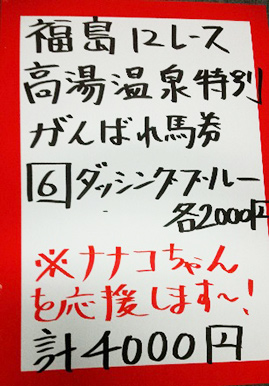 福島12レース
高湯温泉特別
がんばれ馬券
6 ダッシングブルー
各2000円
※ナナコちゃん
を応援します～!
計4000円